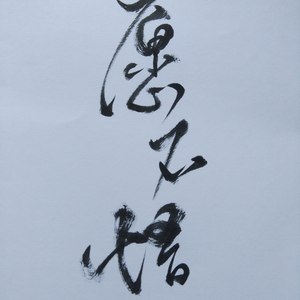 愿不惜